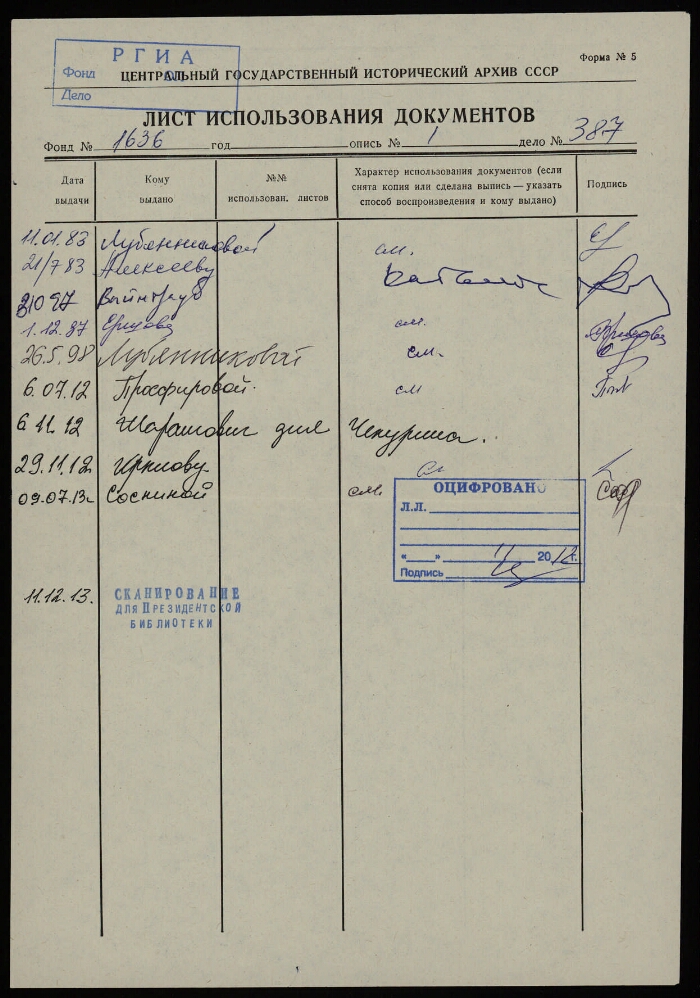 РГИА
Фонд
Оп.
Дело
Форма № 5
ЦЕНТРАЛЬНЫЙ ГОСУДАРСТВЕННЫЙ ИСТОРИЧЕСКИЙ АРХИВ СССР
ЛИСТ ИСПОЛЬЗОВАНИЯ ДОКУМЕНТОВ
Фонд № 1636 год опись № 1 дело № 387
Дата выдачи
Кому выдано
№№ использован. листов
Характер использования документов (если снята копия или сделана выпись — указать способ воспроизведения и кому выдано)
Подпись
11.01.83 Лубянниковой см.
21/7 83 Алексееву
Вайнтрауб
1.12.87 Ершова см.
26.5.98 Лубянниковой см.
6.07.12 Просфировой. см
6 11.12 для
29.11.12 см
09.07.13г Соскиной см.
ОЦИФРОВАНО
Л.Л.
« » 11 2012 г.
Подпись
11.12.13. СКАНИРОВАНИЕ
ДЛЯ ПРЕЗИДЕНТСКОЙ
БИБЛИОТЕКИ